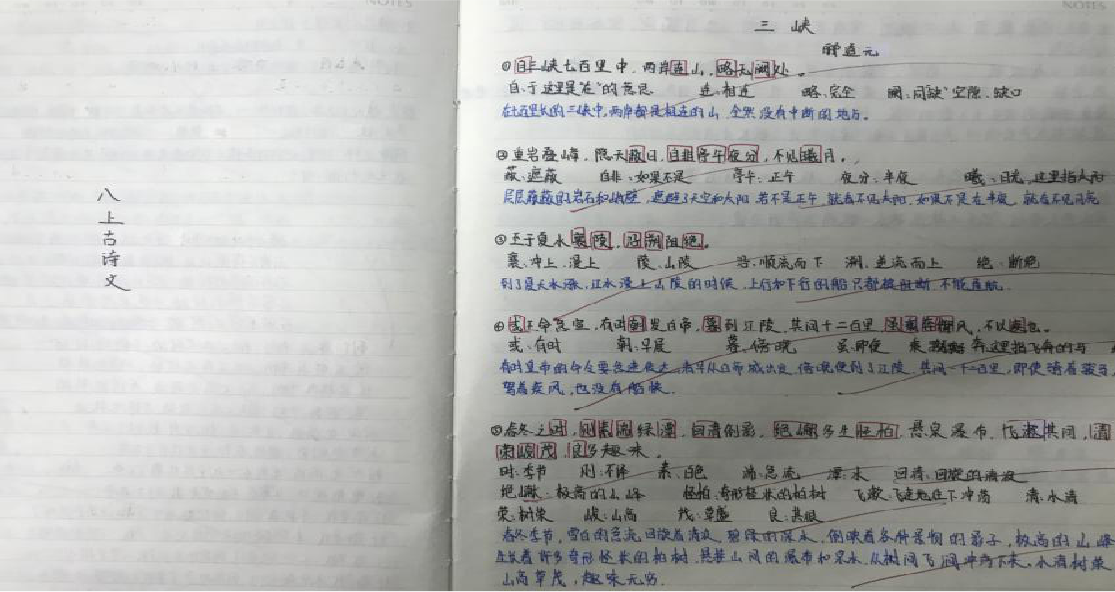 八上古诗文
三峡
郦道元
①自三峡七百里中，两岸连山，略无阙处。
自：于 这里是“在”的意思 连：相连 略：完全 阙：同“缺”空隙、缺口
在七百里长的三峡中，两岸都是相连的山，全然没有中断的地方。
②重岩叠嶂，隐天蔽日，自非亭午夜分，不见曦月。
蔽：遮蔽 自非：如果不是 亭午：正午 夜分：半夜 曦：日光，这里指太阳
层层叠叠的岩石和峭壁，遮避了天空和太阳，若不是正午，就看不见太阳，如果不是在半夜，就看不见月亮
③至于夏水襄陵，沿溯阻绝。
襄：冲上、漫上 陵：山陵 沿：顺流而下 溯：逆流而上 绝：断绝
到了夏天水涨，江水漫上山陵的时候，上行和下行的船只都被阻断，不能通航.
④或王命急宣，有时朝发白帝，暮到江陵，其间千二百里，虽乘奔御风，不以疾也。
或：有时 朝：早晨 暮：傍晚 虽：即使 奔：这里指飞奔的马
有时皇帝的命令要急速传达，清早从白帝城出发，傍晚便到了江陵，其间一千二百里，即使骑着骏马，
驾着疾风，也没有船快.
⑤春冬之时，则素湍绿潭，回清倒影，绝巘多生怪柏，悬泉瀑布，飞漱其间，清
荣峻茂，良多趣味。
时：季节 则：不译 素：白色 湍：急流 潭：水 回清：回旋的清波
绝巘：极高的山峰 怪柏：奇形怪状的柏树 飞漱：飞速地往下冲荡 清：水清
荣：树荣 峻：山高 茂：草盛 良：甚，很
春冬季节，雪白的急流回旋着清波，碧绿的深水，倒映着各种景物的影子，极高的山峰
生长着许多奇形怪状的柏树，悬挂山间的瀑布和泉水，从树间飞泻冲荡下来，水清树荣
山高草茂，趣味无穷.